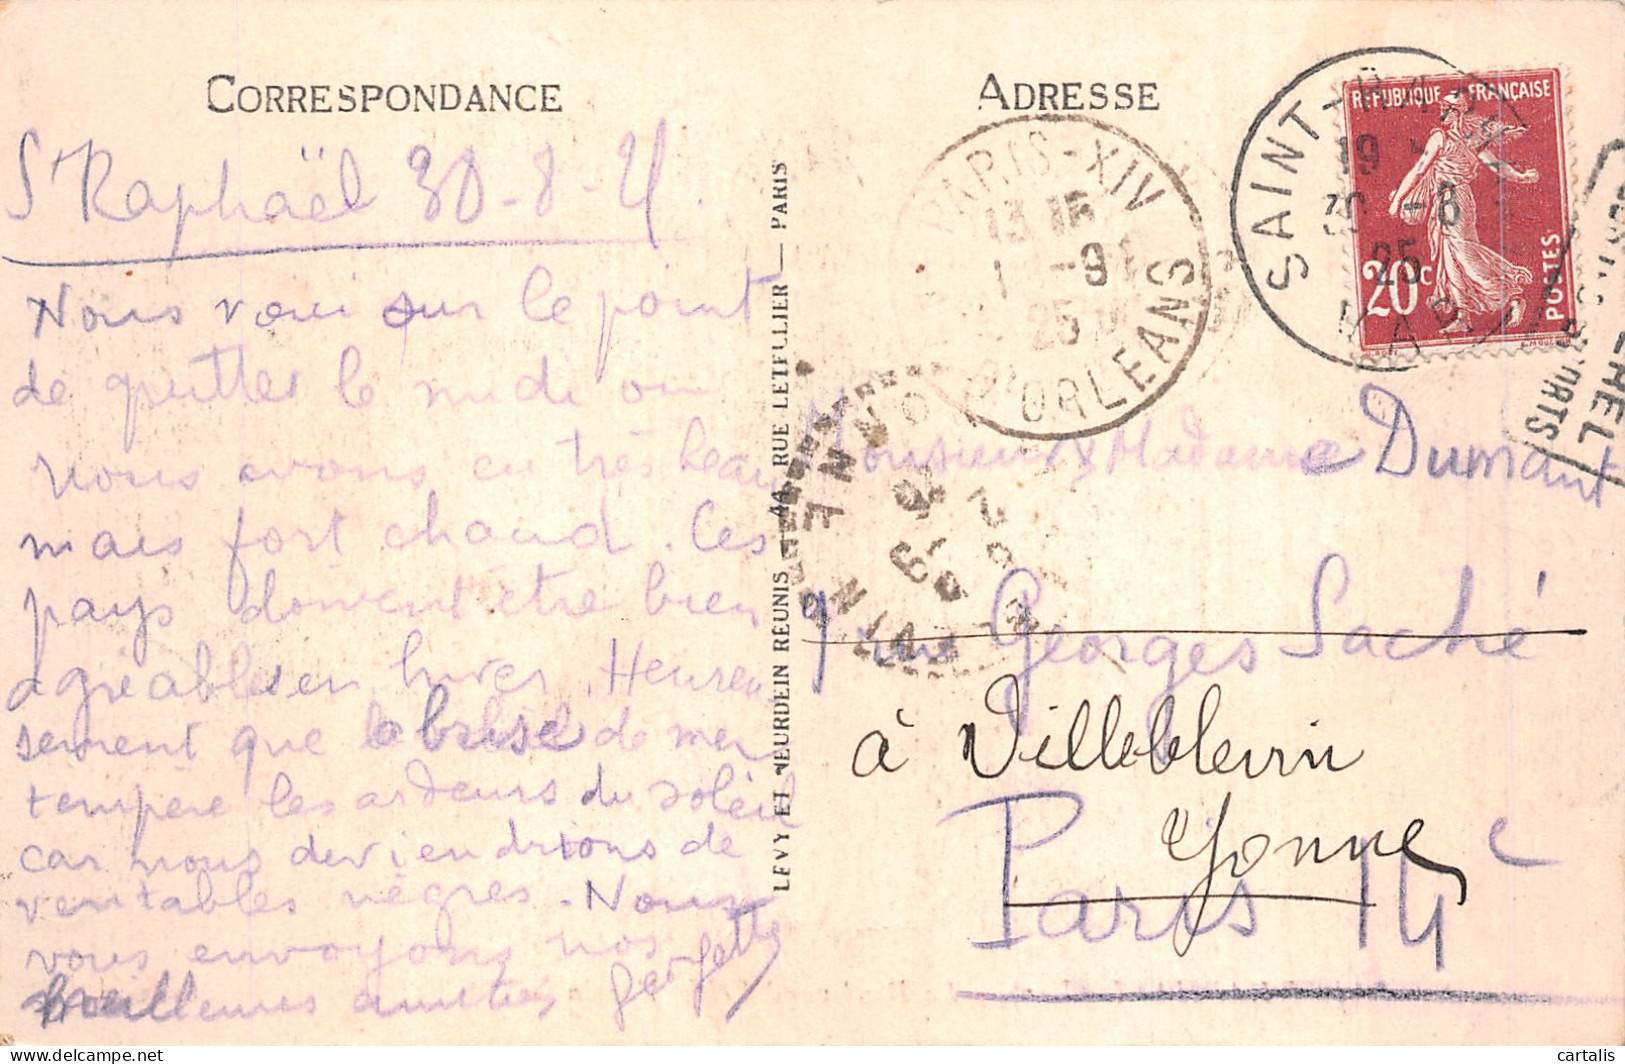 CORRESPONDANCE
St Raphaël 30-8-25.
Nous voici sur le point
de quitter le midi où
nous avons eu très beau
mais fort chaud. Ces
pays doivent être bien
agréables en hiver. Heureu
sement que la brise de mer
tempère les ardeurs du soleil
car nous deviendrions de
véritables nègres. Nous
vous envoyons nos
meilleures amitiés Georgette
LEVY ET NEURDEIN REUNIS 44, RUE LETELLIER — PARIS
ADRESSE
PARIS-XIV
13 15
1 -9
25
D'ORLEANS
SAINT-RAPHAEL
19
30 -8
25
VAR
REPUBLIQUE FRANÇAISE
20c
POSTES
SPORTS
Monsieur & Madame Dumont
9 rue Georges Saché
à Villeblevin
Yonne
Paris 14e
delcampe.net
cartalis